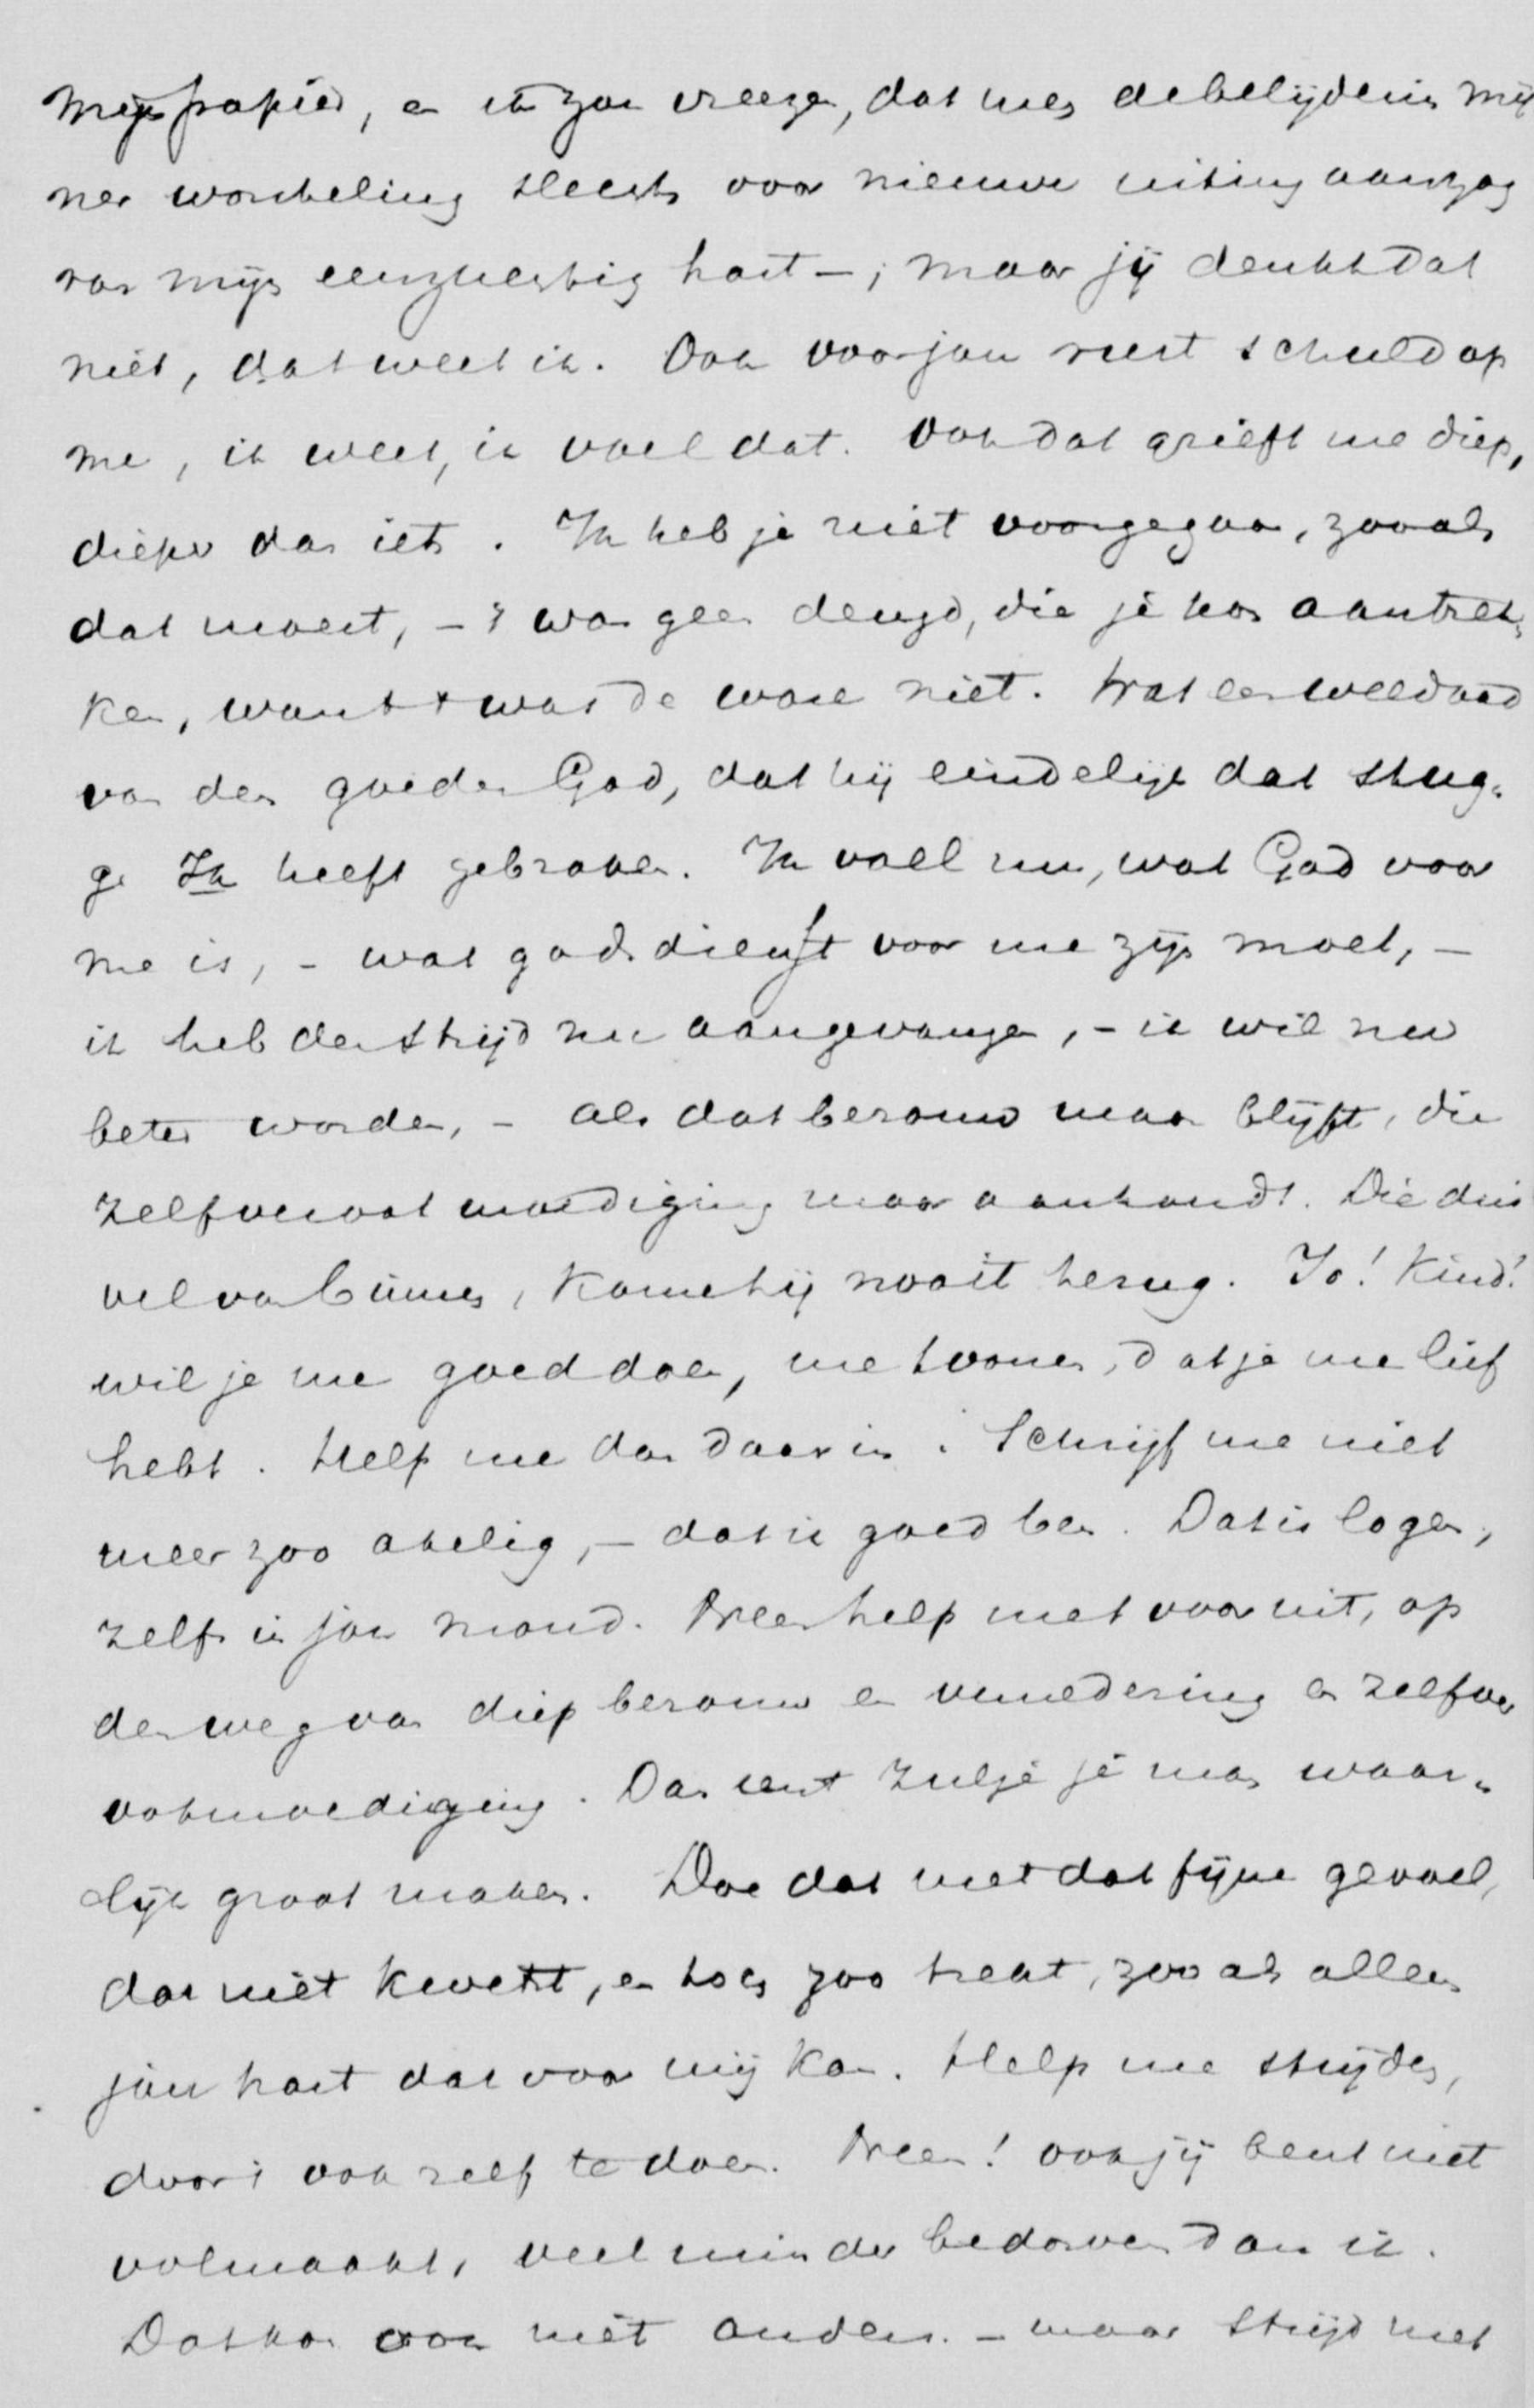 mijn papier, en ik zou vreezen, dat men de belijdenis mij
ner worsteling slechts voor nieuwe uiting aanzag
van mijn eenzuchtig hart –; maar jij denkt dat
niet, dat weet ik. Ook voor jou rust schuld op
me, ik weet, ik voel dat. Ook dat grieft me diep,
dieper dan iets. Ik heb je niet voorgegaan, zooals
dat moest, – 't was geen deugd, die je kon aantrek„
ken, want 't was de ware niet. Wat een weldaad
van den goeden God, dat hij eindelijk dat stug„
ge Ik heeft gebroken. Ik voel nu, wat God voor
me is, – wat godsdienst voor me zijn moet, –
ik heb den strijd nu aangevangen, – ik wil nu
beter worden, – als dat berouw maar blijft, die
zelfverootmoediging maar aanhoudt. Die dui
vel van binnen, kome hij nooit terug. Jo! Kind!
wil je me goed doen, me toonen, dat je me lief
hebt. Help me dan daarin. Schrijf me niet
meer zoo akelig, – dat ik goed ben. Dat is logen,
zelfs in jou mond. Neen help met vooruit, op
den weg van diep berouw en vernedering en zelfver
ootmoediging. Dan eerst zul je je man waar„
lijk groot maken. Doe dat met dat fijne gevoel,
dat niet kwetst, en toch zoo treft, zooals alleen
jou hart dat voor mij kan. Help me strijden,
door 't ook zelf te doen. Neen! ook jij bent niet
volmaakt, veel minder bedorven dan ik.
Dat kan ook niet anders. – maar strijd met